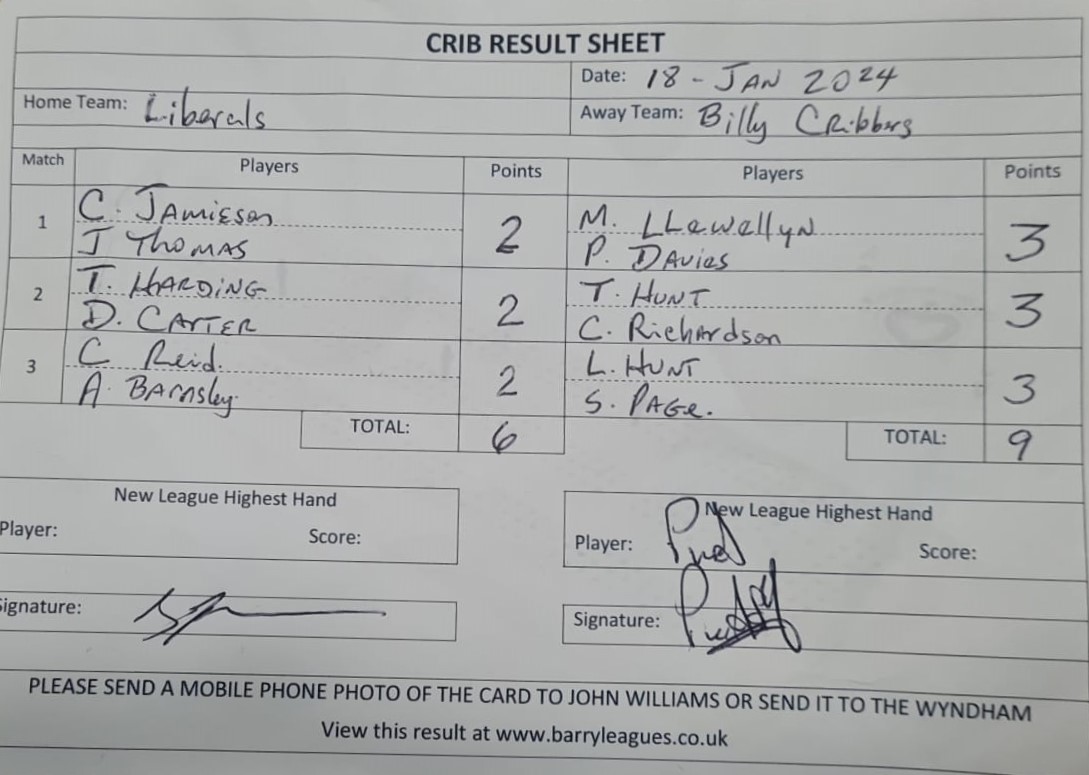 CRIB RESULT SHEET
Date: 18 - JAN 2024
Home Team: Liberals
Away Team: Billy Cribbers
Match Players Points Players Points
1
C. JAMIESON
J THOMAS
2
M. LLewellyn
P. DAVIES
3
2
T. HARDING
D. CARTER
2
T. HUNT
C. Richardson
3
3
C Reid.
A. BARNsley.
2
L. HUNT
S. PAGE.
3
TOTAL: 6
TOTAL: 9
New League Highest Hand
Player: Score:
New League Highest Hand
Player: Score:
Signature:
Signature:
PLEASE SEND A MOBILE PHONE PHOTO OF THE CARD TO JOHN WILLIAMS OR SEND IT TO THE WYNDHAM
View this result at www.barryleagues.co.uk